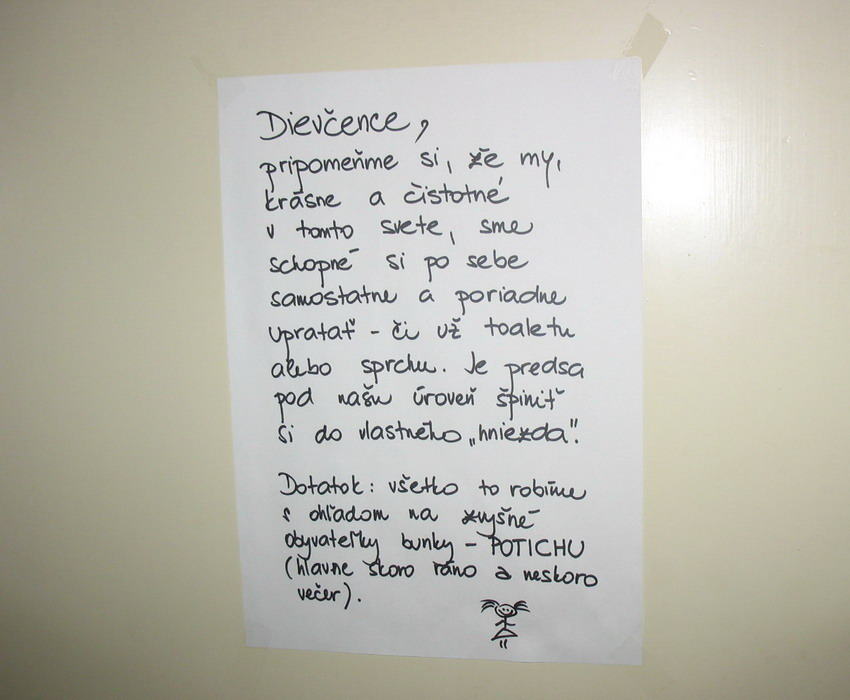 Dievčence,
pripomeňme si, že my,
krásne a čistotné
v tomto svete, sme
schopné si po sebe
samostatne a poriadne
upratať - či už toaletu
alebo sprchu. Je predsa
pod našu úroveň špiniť
si do vlastného „hniezda".
Dotatok: všetko to robíme
s ohľadom na zvyšné
obyvateľky bunky - POTICHU
(hlavne skoro ráno a neskoro
večer).